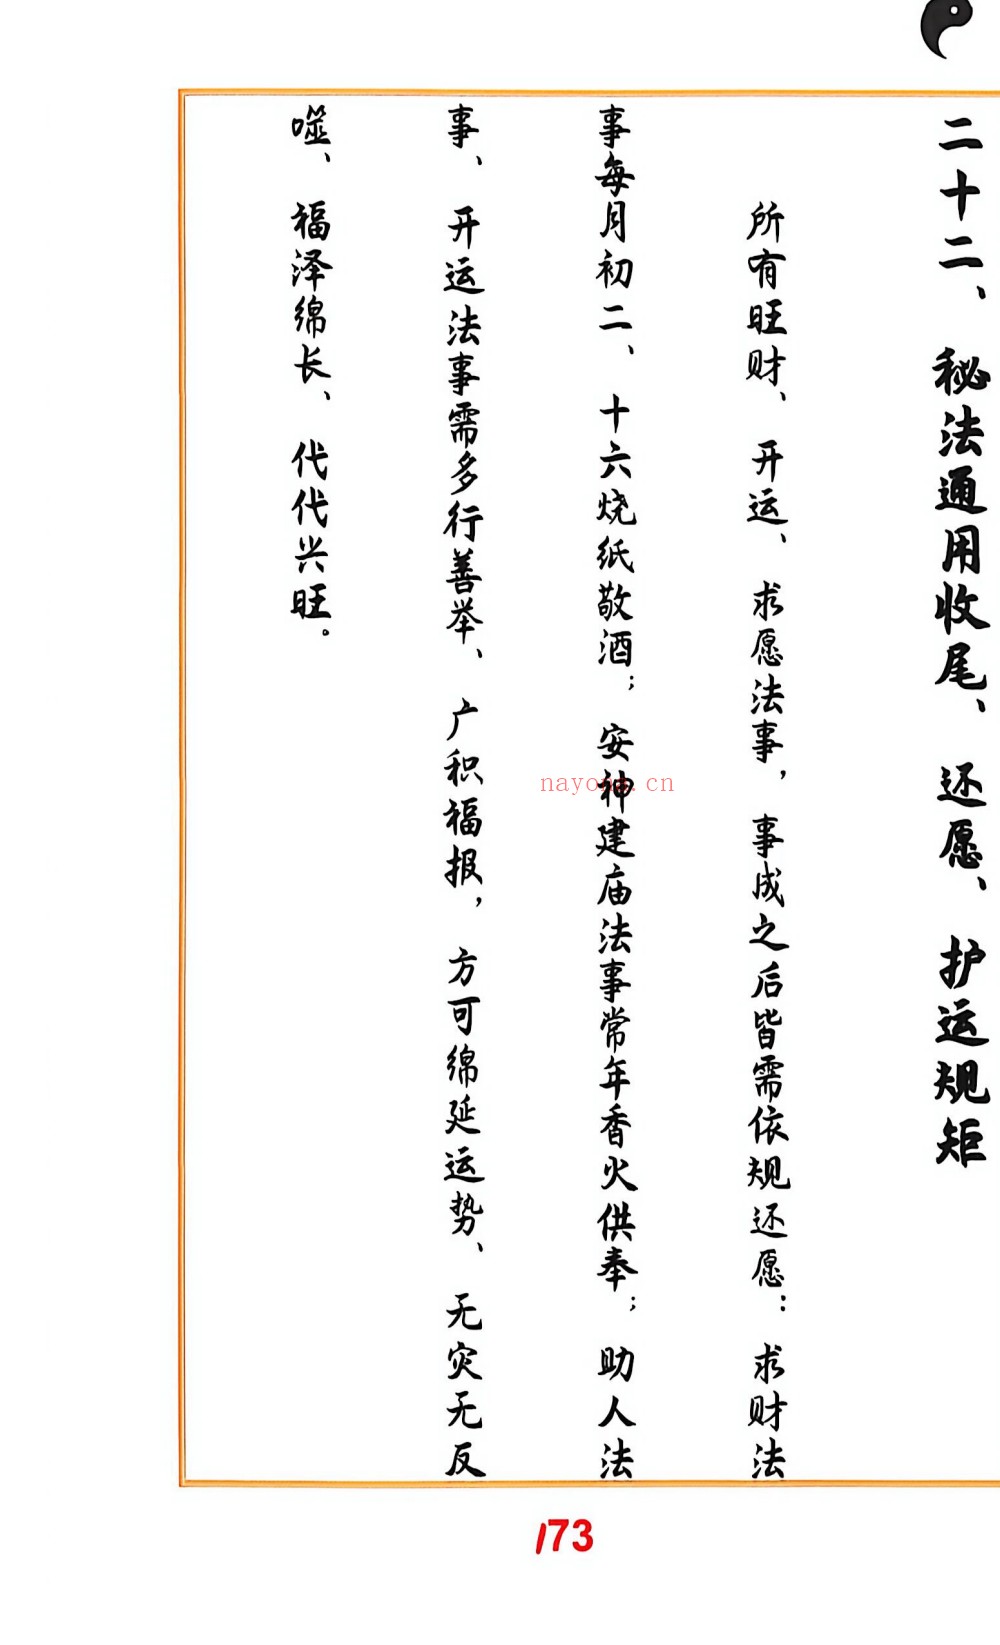 二十二、秘法通用收尾、还愿、护运规矩
所有旺财、开运、求愿法事，事成之后皆需依规还愿：求财法
事每月初二、十六烧纸敬酒；安神建庙法事常年香火供奉；助人法
事、开运法事需多行善举、广积福报，方可绵延运势、无灾无反
噬、福泽绵长、代代兴旺。
173